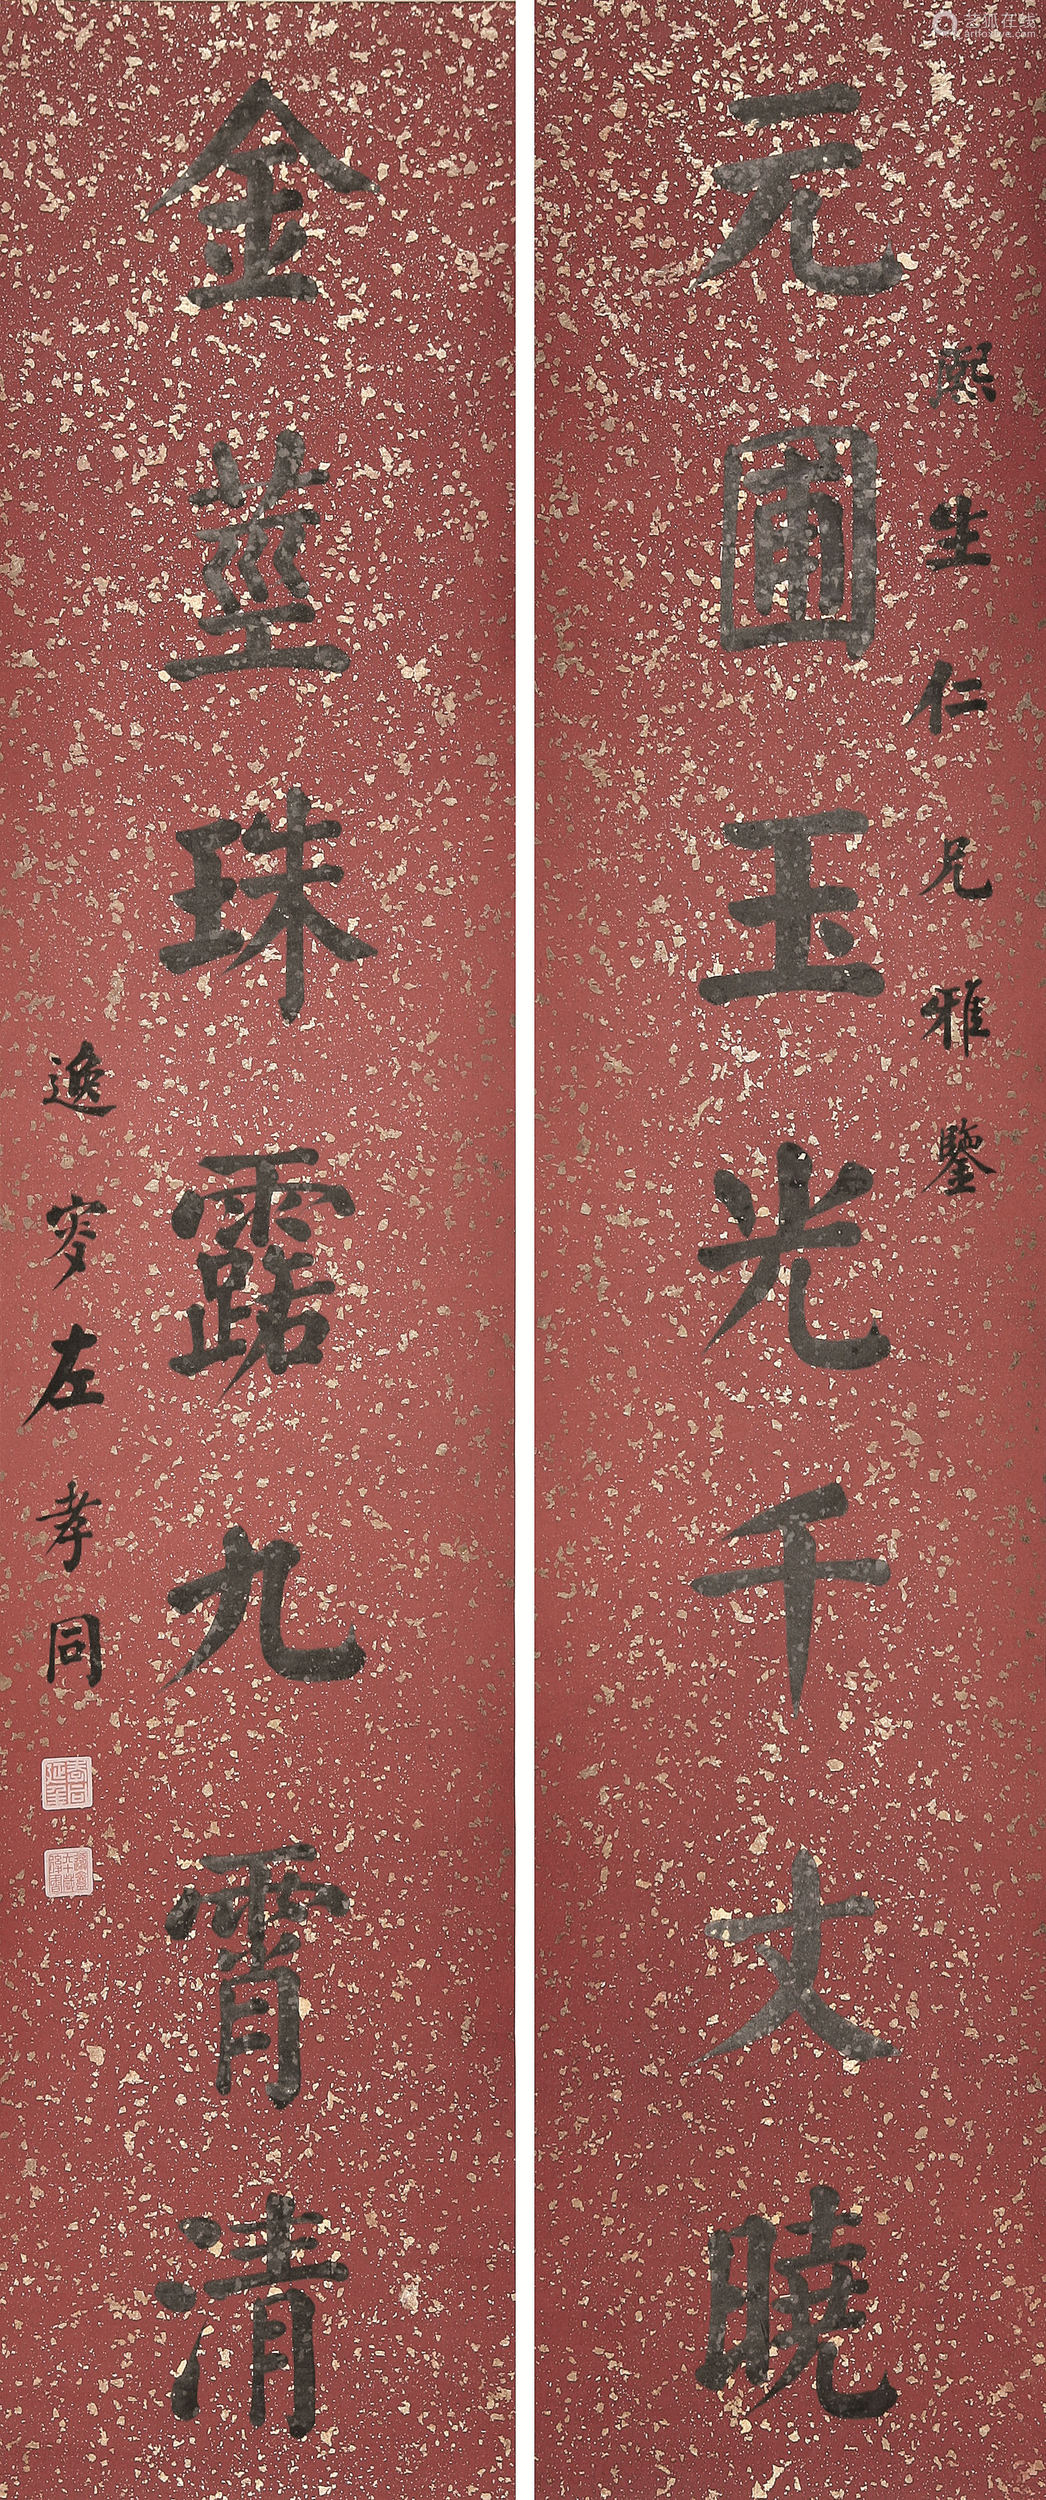 熙生仁兄雅鑒
元圃玉光千丈曉
金莖珠露九霄清
逸叜左孝同
艺狐在线
artfoxlive.com